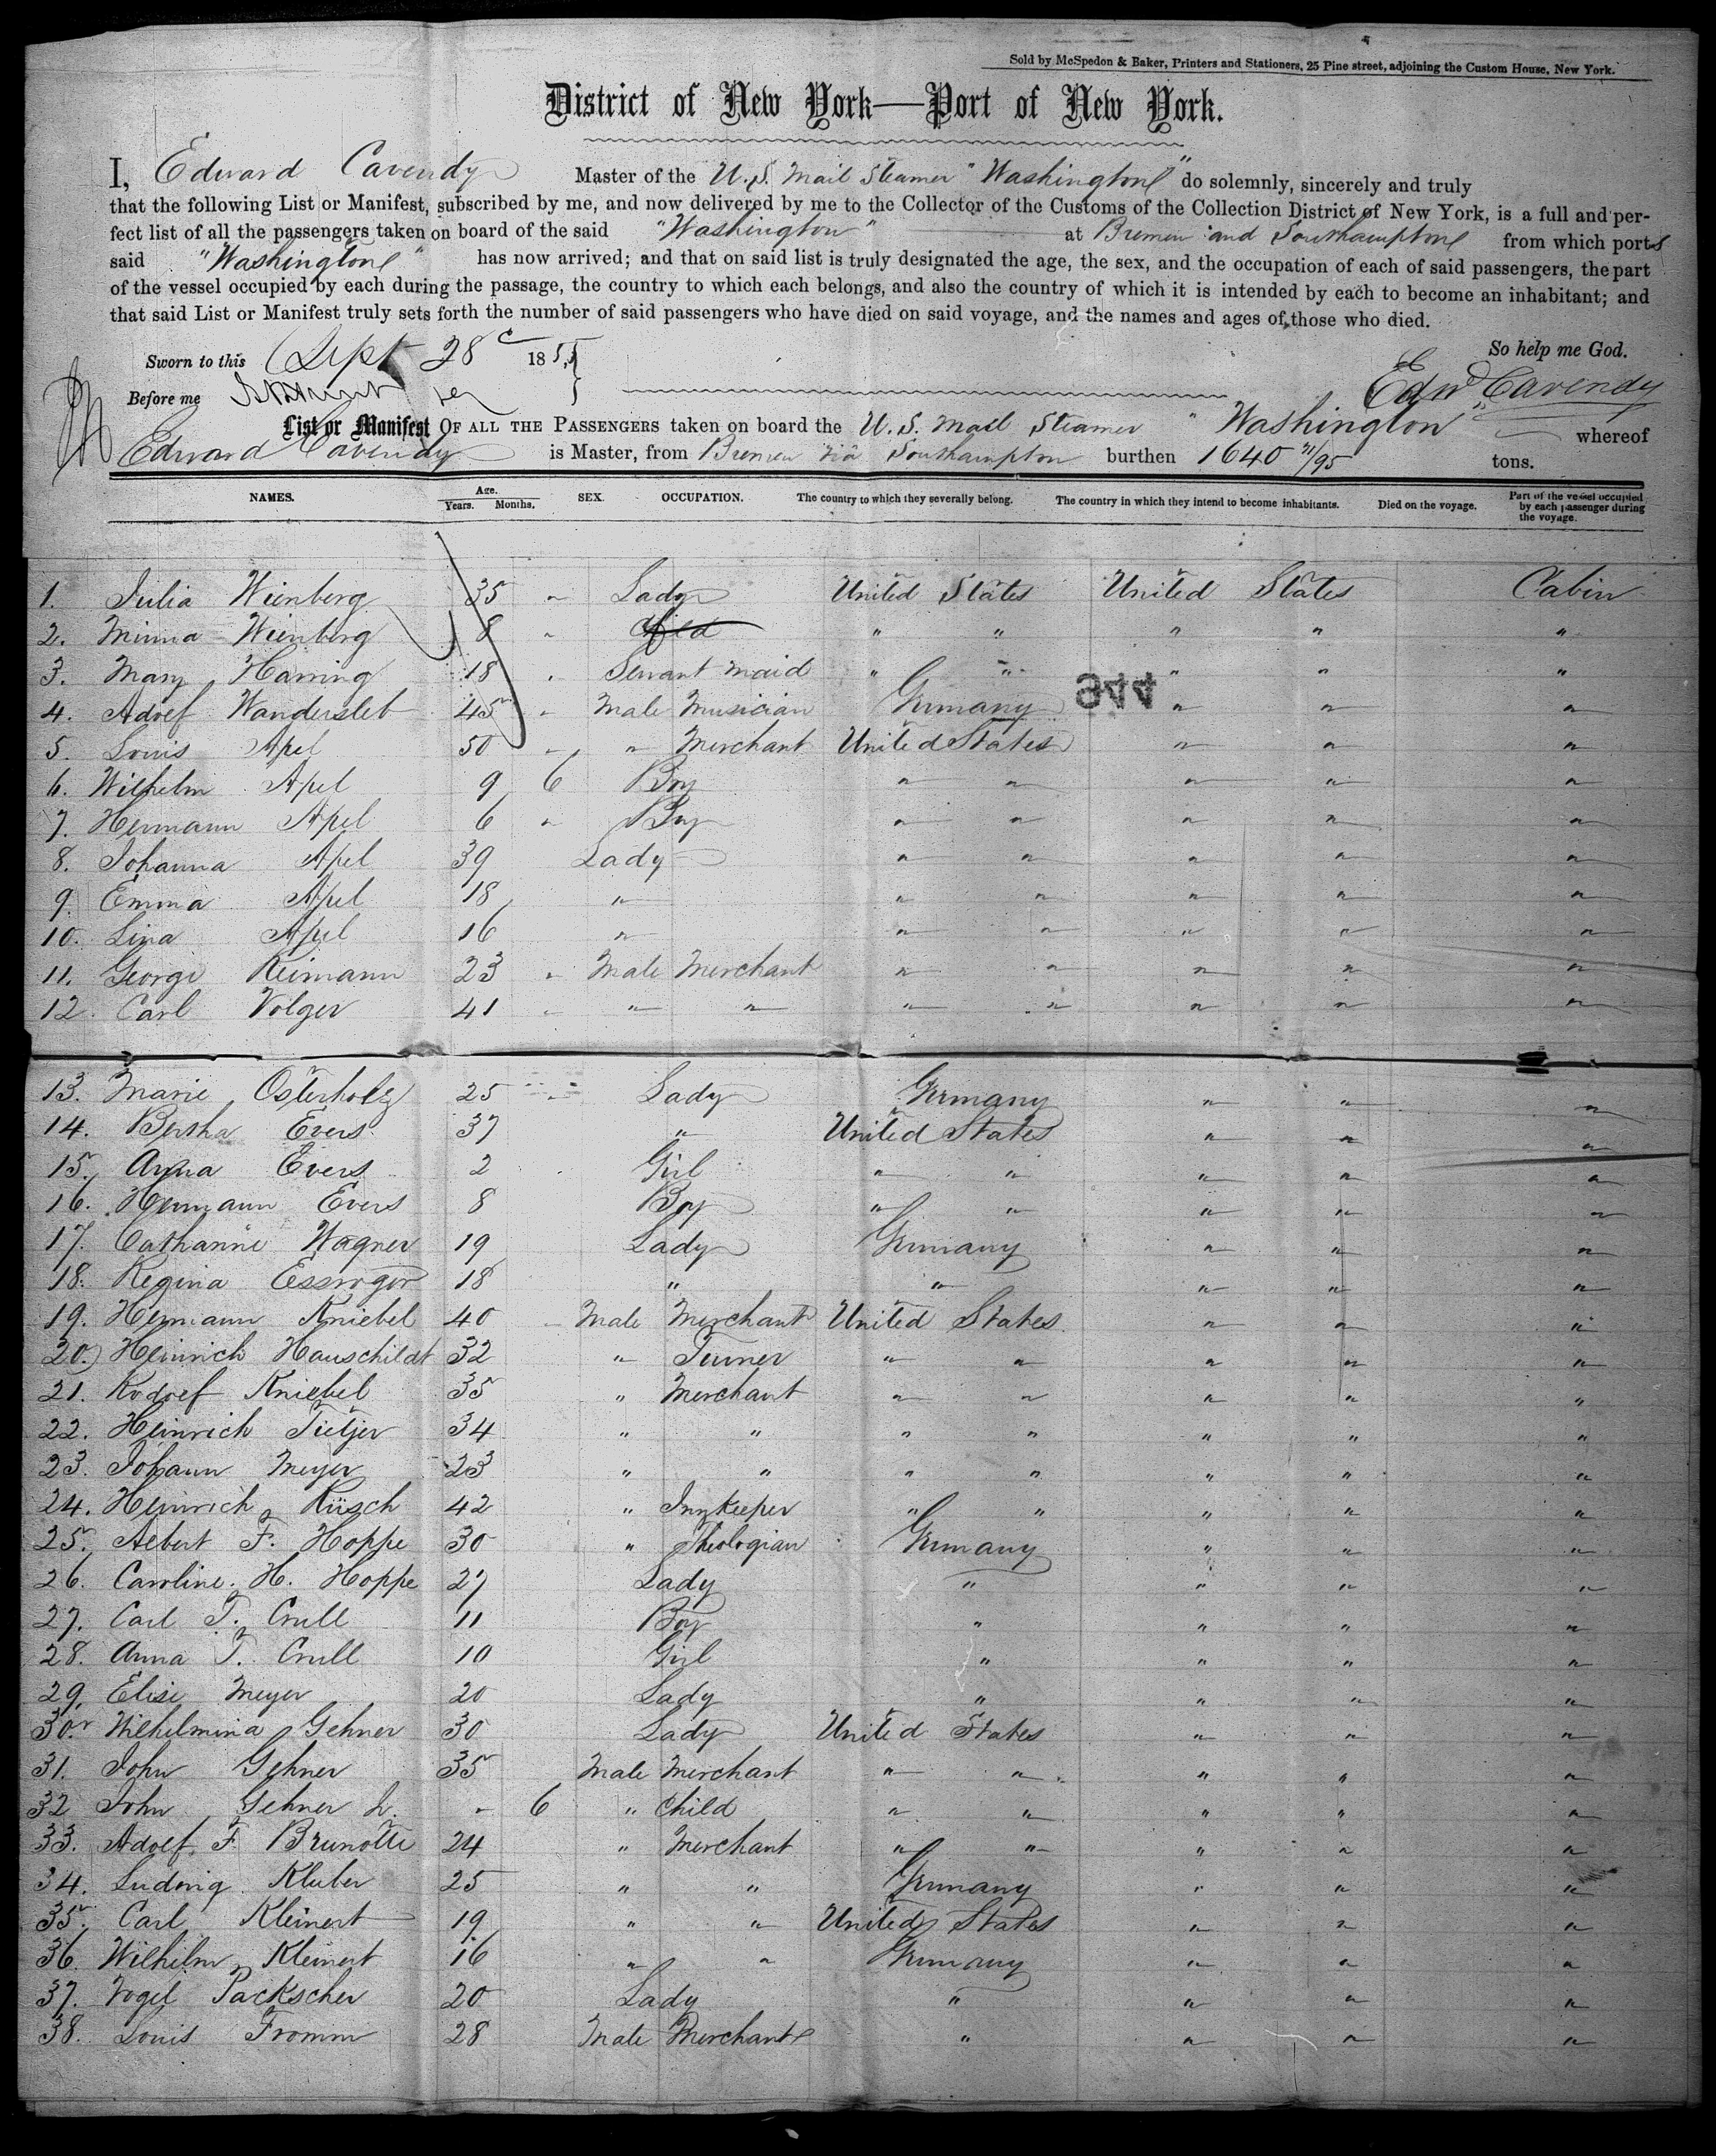 Sold by McSpedon & Baker, Printers and Stationers, 25 Pine street, adjoining the Custom House, New York.
District of New York—Port of New York.
I, Edward Cavendy Master of the U.S. Mail Steamer "Washington" do solemnly, sincerely and truly
that the following List or Manifest, subscribed by me, and now delivered by me to the Collector of the Customs of the Collection District of New York, is a full and per-
fect list of all the passengers taken on board of the said "Washington" at Bremen and Southampton from which ports
said "Washington" has now arrived; and that on said list is truly designated the age, the sex, and the occupation of each of said passengers, the part
of the vessel occupied by each during the passage, the country to which each belongs, and also the country of which it is intended by each to become an inhabitant; and
that said List or Manifest truly sets forth the number of said passengers who have died on said voyage, and the names and ages of those who died.
Sworn to this Sept 28 1855 So help me God.
Before me Edwd Cavendy
List or Manifest OF ALL THE PASSENGERS taken on board the U.S. Mail Steamer "Washington" whereof
Edward Cavendy is Master, from Bremen via Southampton burthen 1640 71/95 tons.
NAMES. Age. Years. Months. SEX. OCCUPATION. The country to which they severally belong. The country in which they intend to become inhabitants. Died on the voyage. Part of the vessel occupied by each passenger during the voyage.
1. Julia Wienberg 35 " Lady United States United States Cabin
2. Minna Wienberg 8 " Child " " " " "
3. Mary Harring 18 " Servant maid " " " " "
944
4. Adolf Wandersleb 45 " Male Musician Germany " " "
5. Louis Apel 50 " " Merchant United States " " "
6. Wilhelm Apel 9 6 Boy " " " " "
7. Hermann Apel 6 " Boy " " " " "
8. Johanna Apel 39 Lady " " " " "
9. Emma Apel 18 " " " " " "
10. Lina Apel 16 " " " " " "
11. George Reimann 23 " Male Merchant " " " " "
12. Carl Volger 41 " " " " " " " "
13. Marie Osterholz 25 " Lady Germany " " "
14. Bertha Evers 37 " United States " " "
15. Anna Evers 2 Girl " " " " "
16. Hermann Evers 8 Boy " " " " "
17. Catharine Wagner 19 Lady Germany " " "
18. Regina 18 " " " " "
19. Hermann Kniebel 40 " Male Merchant United States " " "
20. Heinrich Hauschildt 32 " Turner " " " " "
21. Rudolf Kniebel 35 " Merchant " " " " "
22. Heinrich Tietjer 34 " " " " " " "
23. Johann Meyer 23 " " " " " " "
24. Heinrich Rüsch 42 " Innkeeper " " " " "
25. Albert F. Hoppe 30 " Theologian Germany " " "
26. Caroline H. Hoppe 27 Lady " " " "
27. Carl T. Crull 11 Boy " " " "
28. Anna T. Crull 10 Girl " " " "
29. Elise Meyer 20 Lady " " " "
30. Wilhelmina Gehner 30 Lady United States " " "
31. John Gehner 35 Male Merchant " " " " "
32 John Gehner Jr. " 6 " Child " " " " "
33. Adolf F. Brunotte 24 " Merchant " " " " "
34. Ludwig Kluber 25 " " Germany " " "
35. Carl Kleinert 19 " " United States " " "
36. Wilhelm Kleinert 16 " " Germany " " "
37. Vogel Packscher 20 Lady " " " "
38. Louis Fromm 28 Male Merchant " " " "